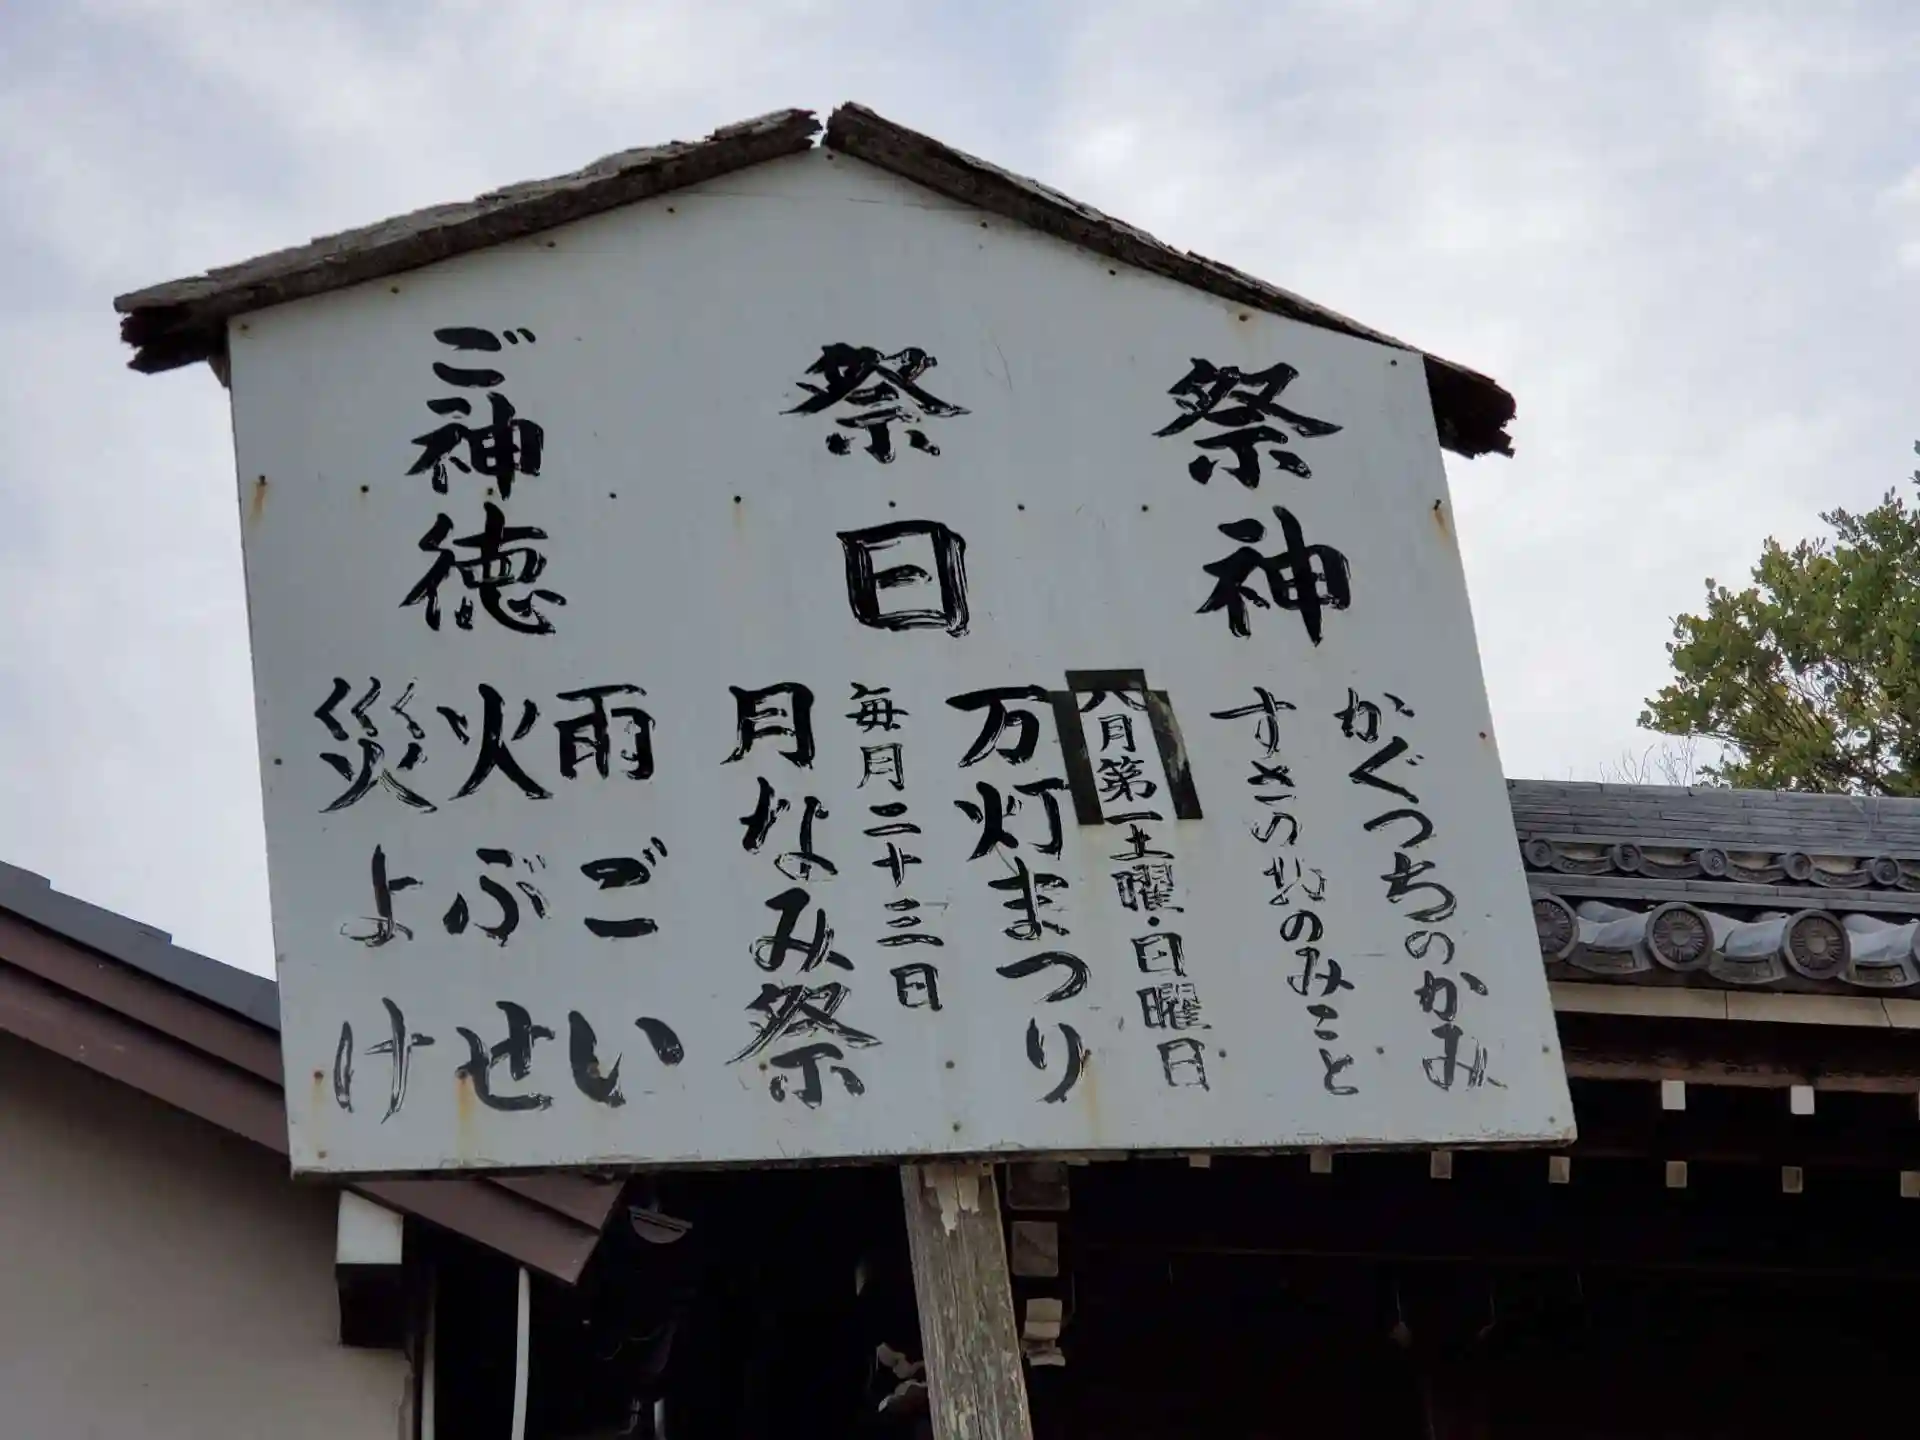 祭神
かぐつちのかみ
すさのおのみこと
祭日
八月第一土曜・日曜日
万灯まつり
毎月二十三日
月なみ祭
ご神徳
雨ごい
火ぶせ
災よけ